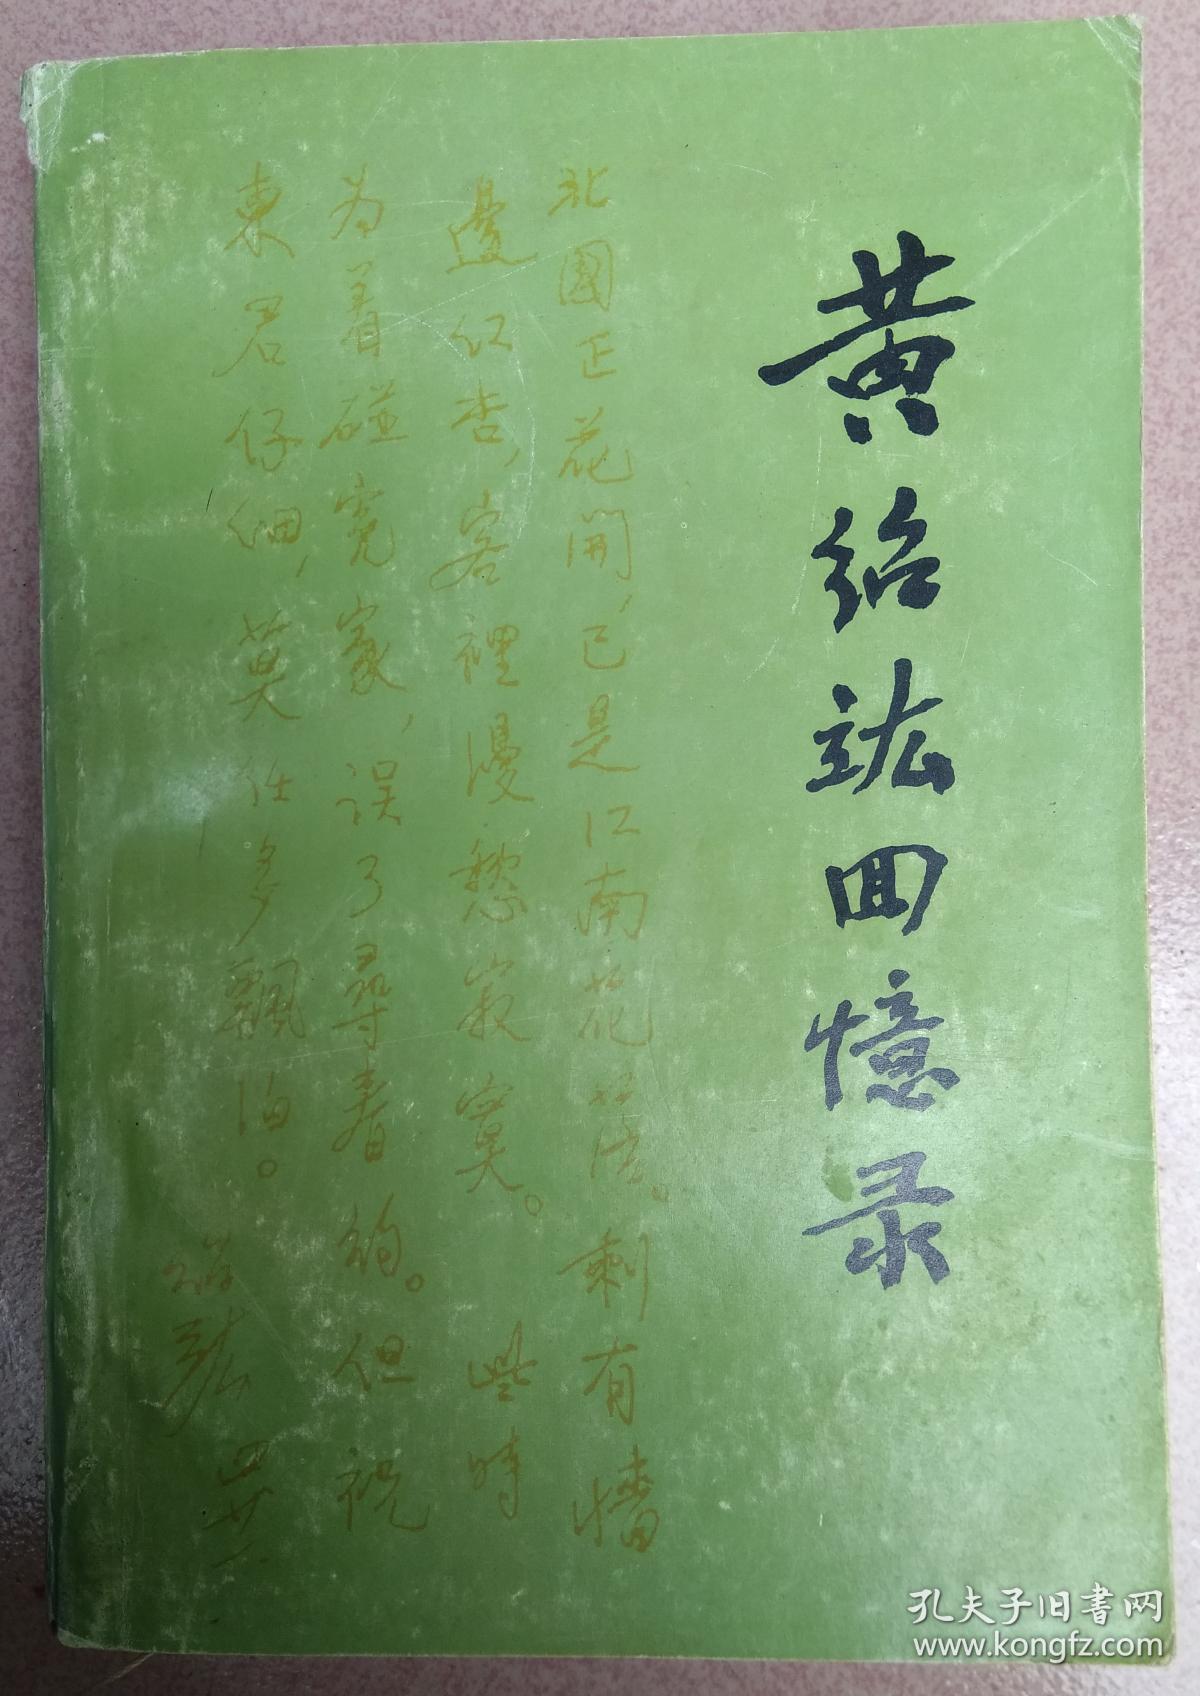 黄绍竑回憶录
北國正花開，已是江南花落。剩有墻
邊红杏，客裡漫愁寂寞。 些時
为着碰寃家，误了尋春約。但祝
東君仔细，莫任多飄泊。
绍竑 四廿一
孔夫子旧書网
www.kongfz.com